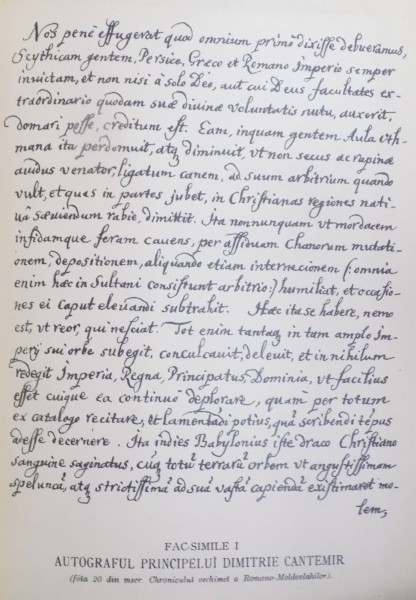 Nos penè effugerat quod omnium primò dixisse debueramus,
Scythicam gentem, Persico, Græco et Romano Imperio semper
inuictam, et non nisi à solo Deo, aut cui Deus facultates ex-
traordinario quodam suæ diuinæ voluntatis nutu, auxerit,
domari posse, creditum est. Eam, inquam gentem Aula Oth-
mana ita perdomuit, atq; diminuit, vt non secus ac rapinæ
auidus venator, ligatum canem, ad suum arbitrium quando
vult, et quas in partes jubet, in Christianas regiones nati-
uâ sæuiendum rabie, dimittit. Ita nonnunquam vt mordacem
infidamque feram cauens, per assiduam Chanorum mutati-
onem, depositionem, aliquando etiam internecionem (: omnia
enim hæc in Sultani consistunt arbitrio :) humiliat, et occasio-
nes ei caput eleuandi subtrahit. Hæc ita se habere, nemo
est, vt reor, qui nesciat. Tot enim tantaq; in tam amplo Im-
perij sui orbe subegit, conculcauit, deleuit, et in nihilum
redegit Imperia, Regna, Principatus, Dominia, vt facilius
esset cuique ea continuo deplorare, quam per totum
ex catalogo recitare, et lamentādi potius, quā scribendi tēpus
adesse decernere. Ita indies Babylonius iste draco Christiano
sanguine saginatus, cūq; totū terrarū orbem vt angustissimam
speluncā, atq; strictissimā ad suā vastā capiendā existimaret mo-
lem,
FAC-SIMILE I
AUTOGRAFUL PRINCIPELUI DIMITRIE CANTEMIR
(fóta 20 din mscr. Chronicului vechimei a Romano-Moldovlahilor).